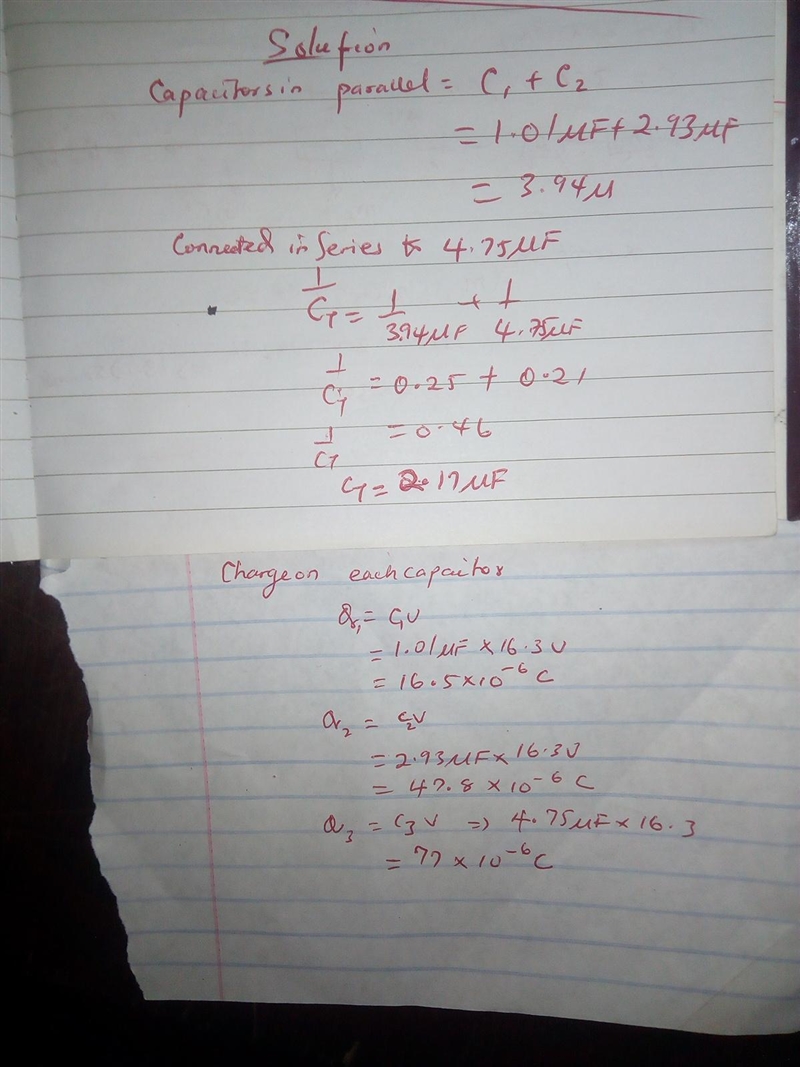 Solution
Capacitors in parallel = C1 + C2
= 1.01μF + 2.93μF
= 3.94μ
Connected in Series to 4.75μF
1/CT = 1/3.94μF + 1/4.75μF
1/CT = 0.25 + 0.21
1/CT = 0.46
CT = 2.17μF
Charge on each capacitor
Q1 = C1V
= 1.01μF × 16.3V
= 16.5×10⁻⁶ C
Q2 = C2V
= 2.93μF × 16.3V
= 47.8 × 10⁻⁶ C
Q3 = C3V => 4.75μF × 16.3
= 77 × 10⁻⁶ C